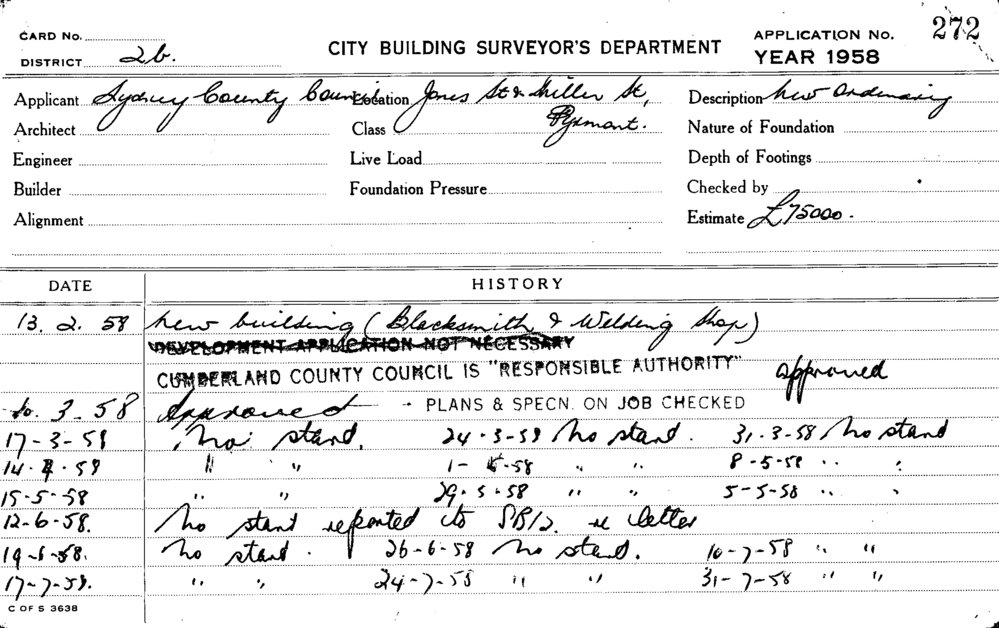 CARD No. CITY BUILDING SURVEYOR'S DEPARTMENT APPLICATION No. 272
DISTRICT 2b. YEAR 1958
Applicant Sydney County Council Location Jones St & Miller St, Description New Ordinary
Architect Class Pyrmont. Nature of Foundation
Engineer Live Load Depth of Footings
Builder Foundation Pressure Checked by
Alignment Estimate £75000.
DATE HISTORY
13. 2. 58 New building (Blacksmith & Welding Shop)
DEVELOPMENT APPLICATION NOT NECESSARY
CUMBERLAND COUNTY COUNCIL IS "RESPONSIBLE AUTHORITY" approved
10. 3. 58 Approved - PLANS & SPECN. ON JOB CHECKED
17-3-58 No stand. 24-3-58 No stand. 31.3-58 No stand
14.4.58 " " 1- 5-58 " " 8-5-58 " "
15-5-58 " " 29.5.58 " " 5-5-58 " "
12-6-58. No stand reported to SB12. re letter
19-6-58. No stand. 26-6-58 No stand. 10-7-58 " "
17-7-58. " " 24-7-58 " " 31-7-58 " "
C OF S 3638